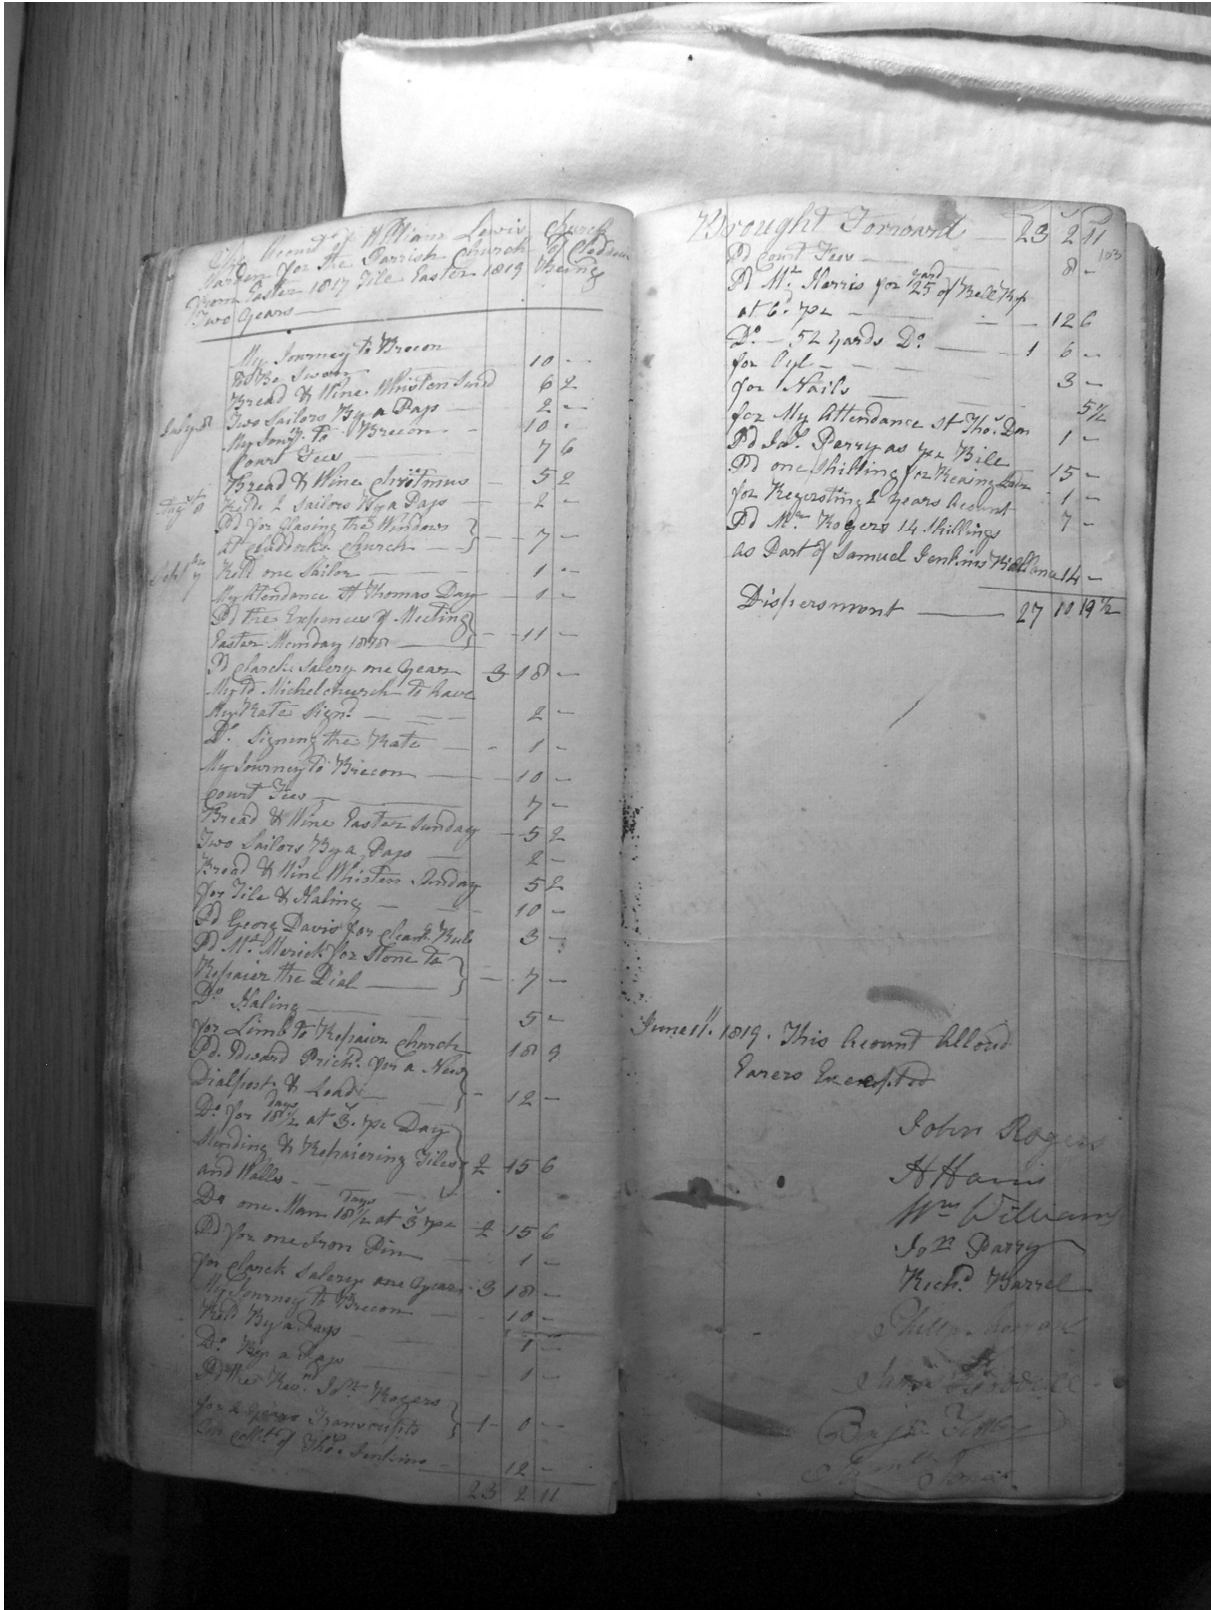 The Acount of William Lewis Church
Warden for the Parrish Church of
From Easter 1817 Tile Easter 1819 Being
Two Years
My Journey to Brecon
to Be Sworn 10 -
Bread & Wine Whisten Sund 6 2
July Two Sailors By a Pass 2 -
My Jour to Brecon 10 -
Court Fees 7 6
Bread & Wine Christmas 5 2
Reld. 2 Sailors By a Pass 2 -
Pd for Glasing the Windows
at Church 7 -
7 Reld one Sailor 1 -
My Atendance St Thomas Day 1 -
Pd the Expences of Meeting
Easter Monday 1818 11 -
Pd Clarck Salery one Year 3 18 -
My to Michelchurch to have
My Rate Signd 2 -
Do. Signing the Rate 1 -
My Journey to Brecon 10 -
Court Fees 7 -
Bread & Wine Easter Sunday 5 2
Two Sailors By a Pass 2 -
Bread & Wine Whisten Sunday 5 2
for Tile & Haling 10 -
Pd Georg Davis for 3 -
Pd Mr. Merick for Stone to
Repaier the Dial 7 -
Do Haling 5 -
for Limb to Repaier Church 18 9
Pd. Edward Prichd. for a New
Dialpost & Lead 12 -
Do for 18½ days at 3s. pr Day
Mending & Repaiering Tiles
and Walls 2 15 6
Do one Man 18½ days at 3 pr 2 15 6
Pd for one Iron Pin 1 -
for Clarck Salery one Year 3 18 -
My Journey to Brecon 10 -
Reld By a Pass 1 -
Do. By a Pass 1 -
Pd the Revnd. Jon. Rogers
for 2 Years Transcripts 1 0 -
of Thos. Jenkins 12 -
23 2 11
Brought Forward 23 2 11
103
Pd Court Fees 8 -
Pd Mr. Harris for 25 yard of Bell Rop
at 6d. pr 12 6
Do - 52 Yards Do. 1 6 -
for Oyl 3 -
for Nails 5½
for My Attendance St Thos. Day 1 -
Pd Jas. Parry as pr Bile 15 -
Pd one Shilling for 1 -
for Regersting 2 Years Acount 7 -
Pd Mr Rogers 14 Shillings
as Part of Samuel Jenkins Ballance 14 -
Dispersmont 27 10 19½
June 11th. 1819. This Acount Alloud
Earers Excepted
John Rogers
H Harris
Wm Williams
Jon Parry
Richd. Barrel